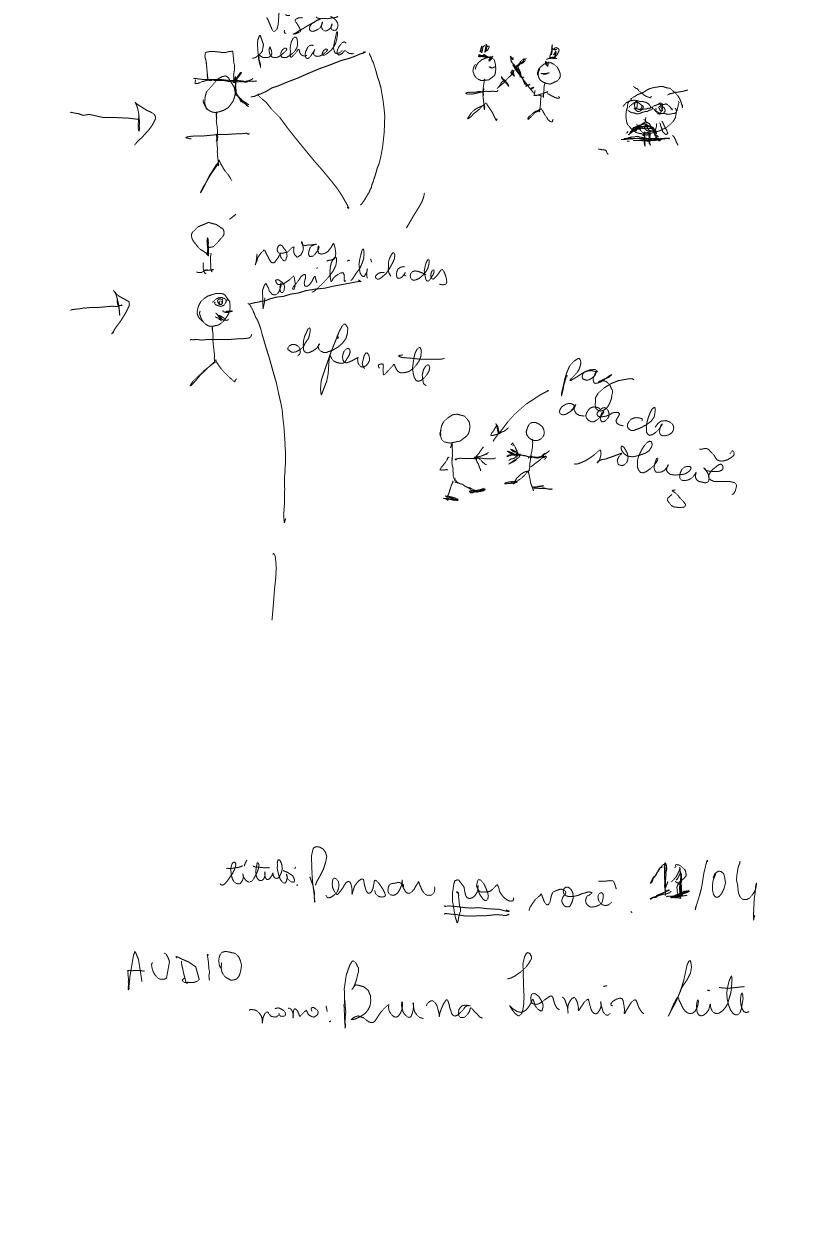 Visão
fechada
novas
possibilidades
diferente
paz
acordo
soluções
título: Pensar por você. 11/04
AUDIO
nome: Bruna Tormin Leite